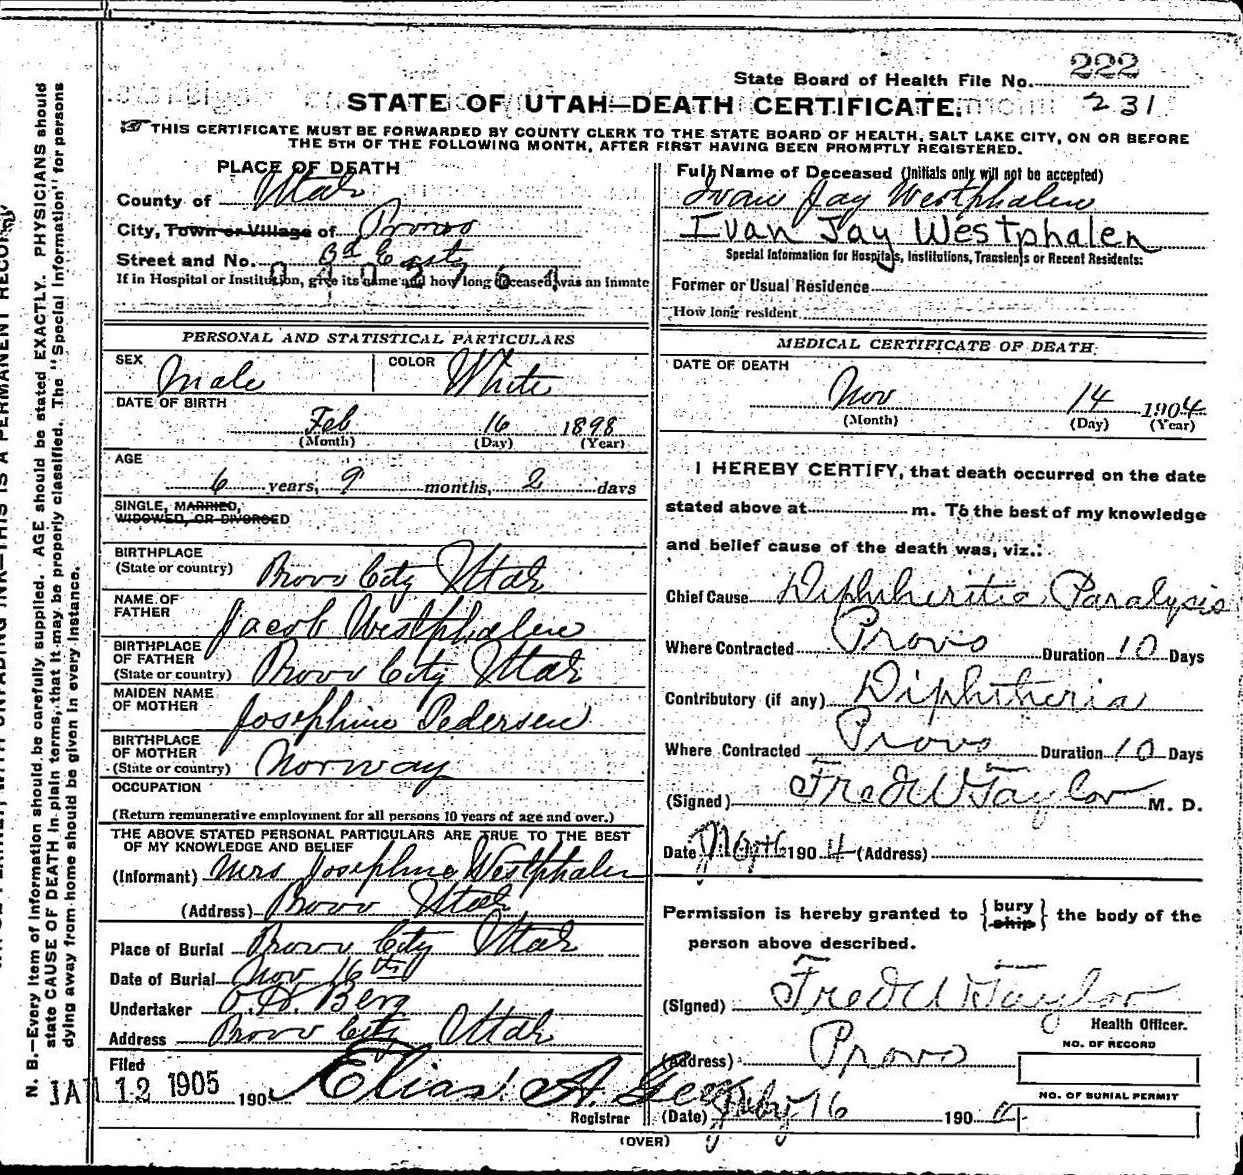 State Board of Health File No. 222
STATE OF UTAH—DEATH CERTIFICATE. 231
THIS CERTIFICATE MUST BE FORWARDED BY COUNTY CLERK TO THE STATE BOARD OF HEALTH, SALT LAKE CITY, ON OR BEFORE
THE 5TH OF THE FOLLOWING MONTH, AFTER FIRST HAVING BEEN PROMPTLY REGISTERED.
PLACE OF DEATH
County of Utah
City, Town or Village of Provo
Street and No. 3d
If in Hospital or Institution, give its name and how long deceased was an inmate
Full Name of Deceased (Initials only will not be accepted)
Ivan Jay Westphalen
Ivan Jay Westphalen
Special Information for Hospitals, Institutions, Transients or Recent Residents:
Former or Usual Residence
How long resident
PERSONAL AND STATISTICAL PARTICULARS
SEX Male COLOR White
DATE OF BIRTH
Feb 16 1898
(Month) (Day) (Year)
AGE
6 years, 9 months, 2 days
SINGLE, MARRIED,
WIDOWED, OR DIVORCED
BIRTHPLACE
(State or country) Provo City Utah
NAME OF
FATHER Jacob Westphalen
BIRTHPLACE
OF FATHER
(State or country) Provo City Utah
MAIDEN NAME
OF MOTHER Josephine Pedersen
BIRTHPLACE
OF MOTHER
(State or country) Norway
OCCUPATION
(Return remunerative employment for all persons 10 years of age and over.)
THE ABOVE STATED PERSONAL PARTICULARS ARE TRUE TO THE BEST
OF MY KNOWLEDGE AND BELIEF
(Informant) Mrs Josephine Westphalen
(Address) Provo Utah
Place of Burial Provo City Utah
Date of Burial Nov 16th
Undertaker O. H. Berg
Address Provo City Utah
Filed
JAN 12 1905 190 Elias A. Gee
Registrar
MEDICAL CERTIFICATE OF DEATH.
DATE OF DEATH
Nov 14 1904
(Month) (Day) (Year)
I HEREBY CERTIFY, that death occurred on the date
stated above at m. To the best of my knowledge
and belief cause of the death was, viz.:
Chief Cause Diphtheritic Paralysis
Where Contracted Provo Duration 10 Days
Contributory (if any) Diphtheria
Where Contracted Provo Duration 10 Days
(Signed) Fred W Taylor M. D.
Date 190 4 (Address)
Permission is hereby granted to { bury ship } the body of the
person above described.
(Signed) Fred W Taylor
Health Officer.
(Address) Provo
NO. OF RECORD
NO. OF BURIAL PERMIT
(Date) 16 190
(OVER)
N. B.—Every item of information should be carefully supplied. AGE should be stated EXACTLY. PHYSICIANS should
state CAUSE OF DEATH in plain terms, that it may be properly classified. The "Special Information" for persons
dying away from home should be given in every instance.